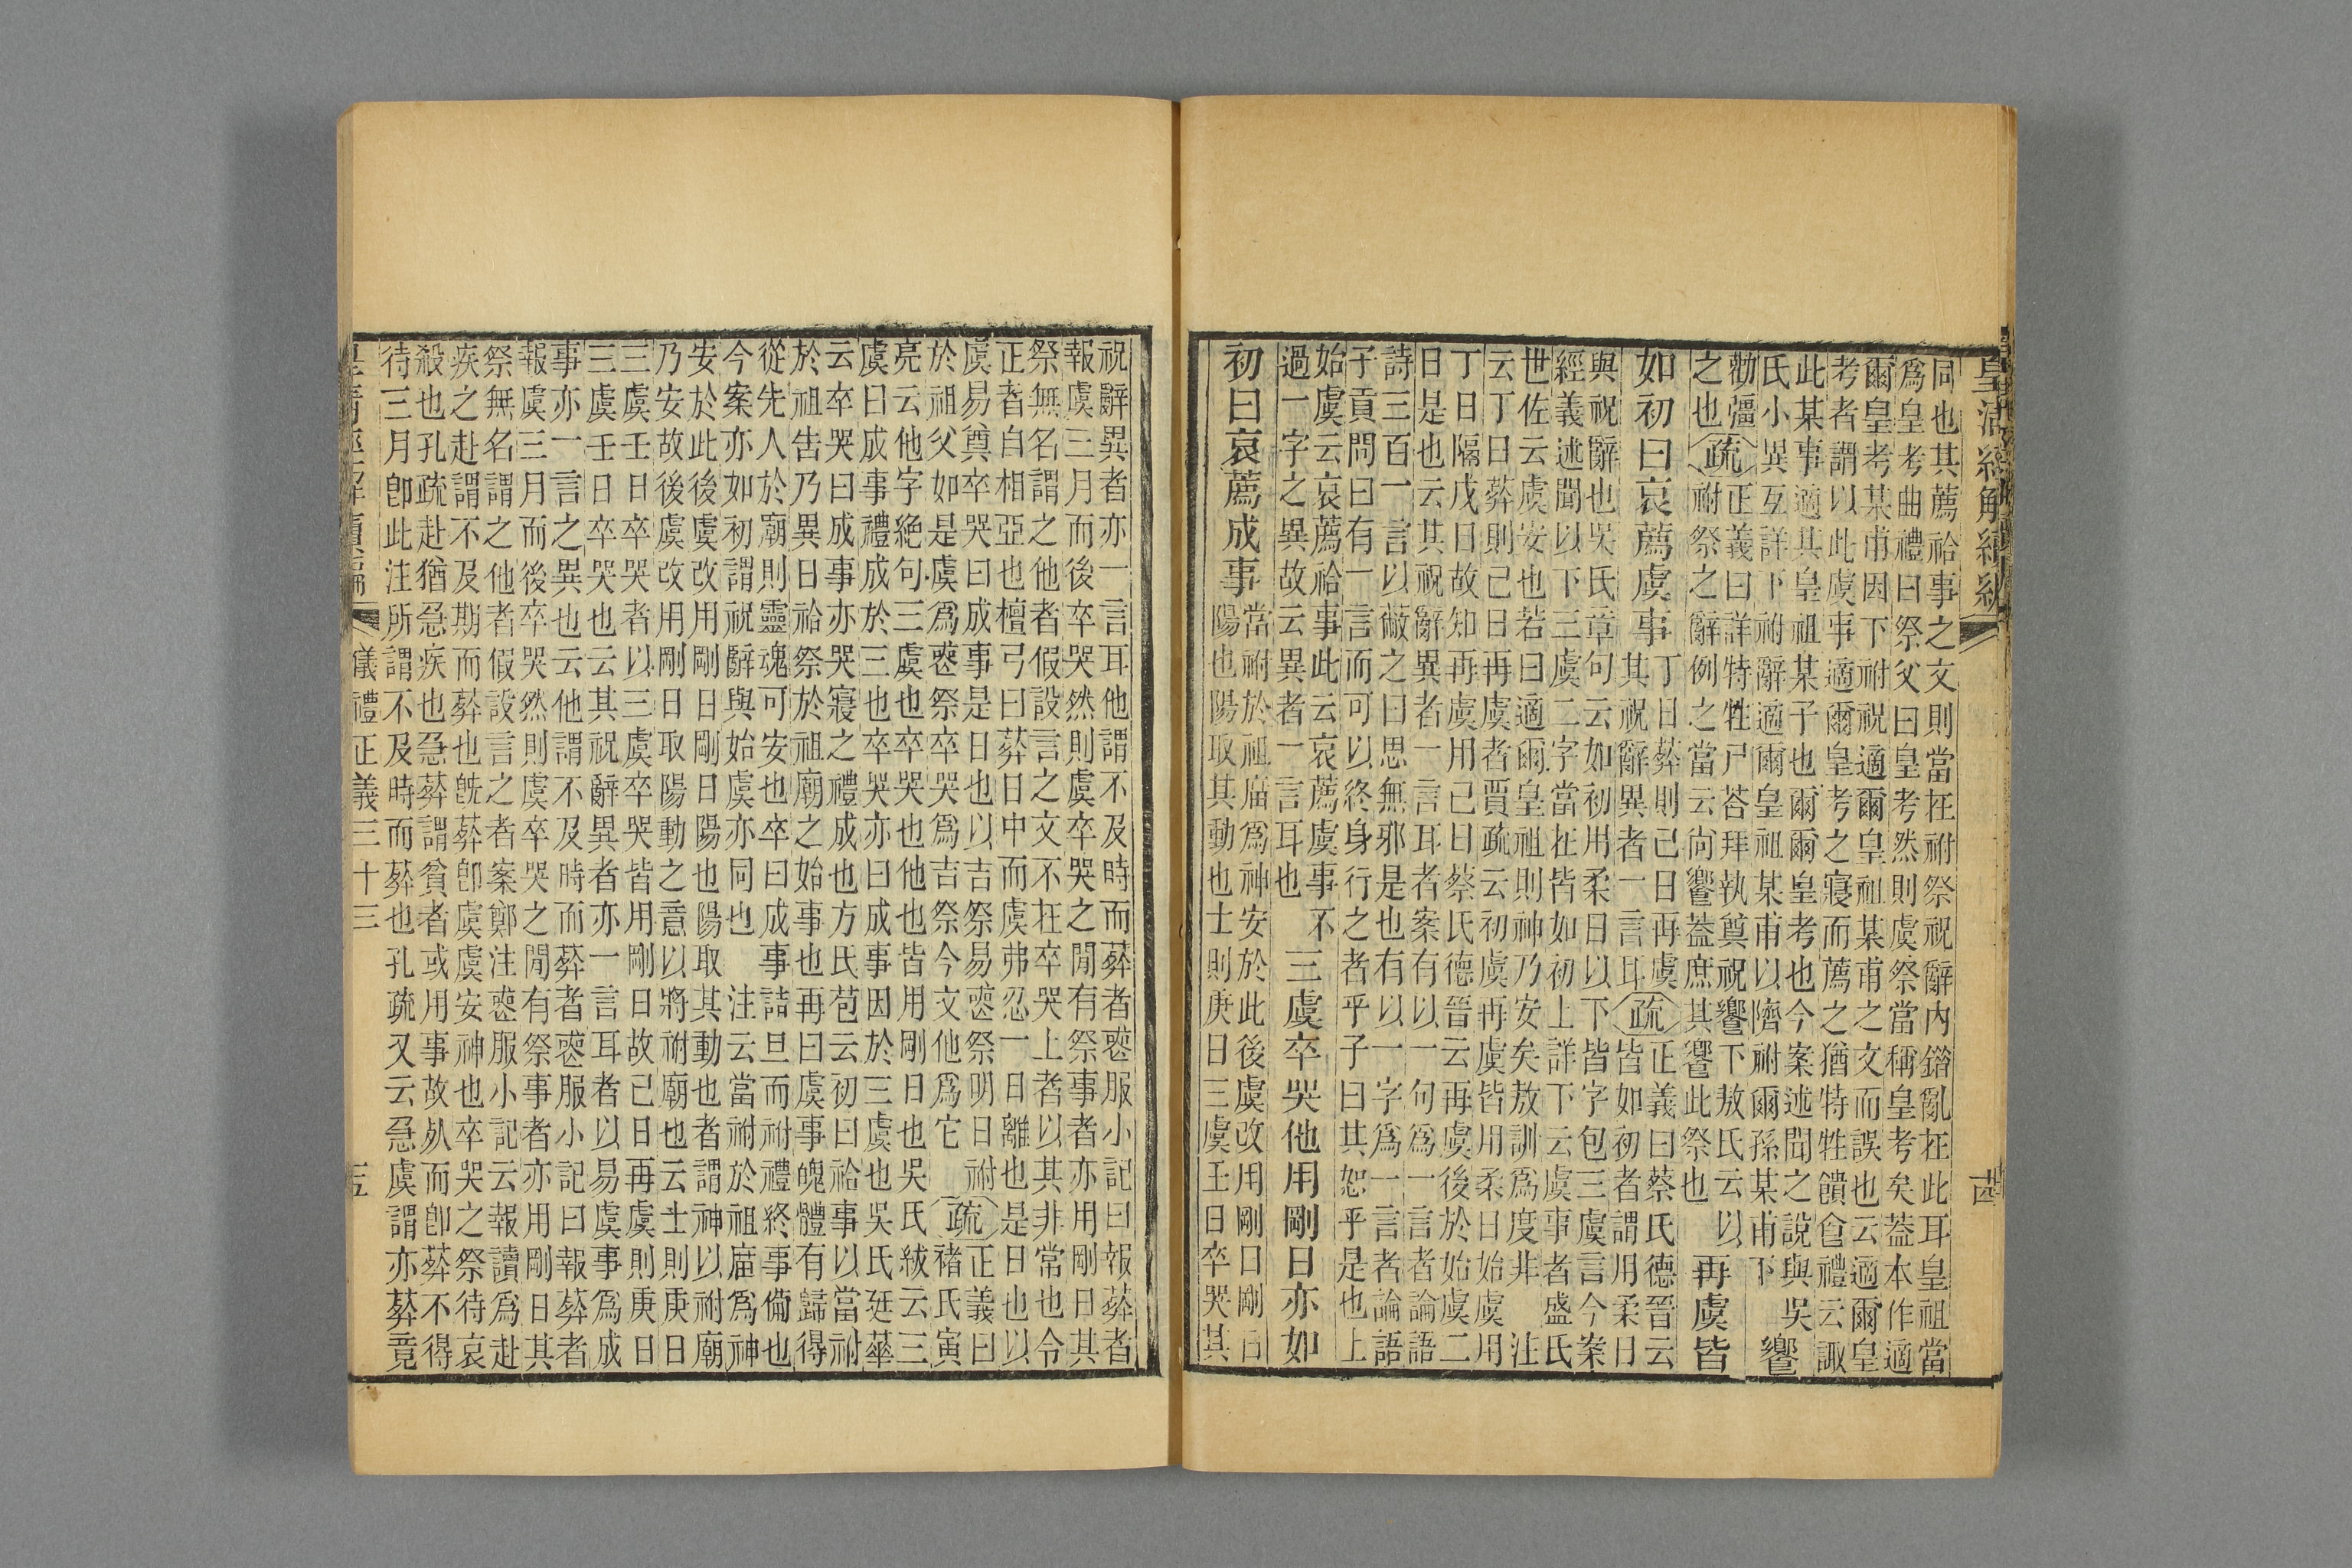 皇清經解續編
十四
同也其薦祫事之文則當在祔祭祝辭內錯亂在此耳皇祖當
爲皇考曲禮曰祭父曰皇考然則虞祭當稱皇考矣葢本作適
爾皇考某甫因下祔祝適爾皇祖某甫之文而誤也云適爾皇
考者謂以此虞事適爾皇考之寢而薦之猶特牲饋食禮云諏
此某事適其皇祖某子也爾爾皇考也今案述聞之說與吳
氏小異互詳下祔辭適爾皇祖某甫以隮祔爾孫某甫下
饗
勸彊
之也
疏
正義曰詳特牲尸荅拜執奠祝饗下敖氏云以
祔祭之辭例之當云尚饗葢庶其饗此祭也
再虞皆
如初曰哀薦虞事
丁日葬則己日再虞
其祝辭異者一言耳
疏
正義曰蔡氏德晉云
皆如初者謂用柔日
與祝辭也吳氏章句云如初用柔日以下皆字包三虞言今案
經義述聞以下三虞二字當在皆如初上詳下云虞事者盛氏
世佐云虞安也若曰適爾皇祖則神乃安矣敖訓爲度非 注
云丁日葬則己日再虞者賈疏云初虞再虞皆用柔日始虞用
丁日隔戊日故知再虞用己日蔡氏德晉云再虞後於始虞二
日是也云其祝辭異者一言耳者案有以一句爲一言者論語
詩三百一言以蔽之曰思無邪是也有以一字爲一言者論語
子貢問曰有一言而可以終身行之者乎子曰其恕乎是也上
始虞云哀薦祫事此云哀薦虞事不
過一字之異故云異者一言耳也
三虞卒哭他用剛日亦如
初曰哀薦成事
當祔於祖廟爲神安於此後虞改用剛日剛日
陽也陽取其動也士則庚日三虞壬日卒哭其
祝辭異者亦一言耳他謂不及時而葬者喪服小記曰報葬者
報虞三月而後卒哭然則虞卒哭之閒有祭事者亦用剛日其
祭無名謂之他者假設言之文不在卒哭上者以其非常也令
正者自相亞也檀弓曰葬日中而虞弗忍一日離也是日也以
虞易奠卒哭曰成事是日也以吉祭易喪祭明日祔
於祖父如是虞爲喪祭卒哭爲吉祭今文他爲它
疏
正義曰
褚氏寅
亮云他字絶句三虞也卒哭也他也皆用剛日也吳氏紱云三
虞曰成事禮成於三也卒哭亦曰成事因於三虞也吳氏廷華
云卒哭曰成事亦哭寢之禮成也方氏苞云初曰祫事以當祔
於祖告乃異日祫祭於祖廟之始事也再曰虞事魄體有歸得
從先人於廟則靈魂可安也卒曰成事詰旦而祔禮終事備也
今案亦如初謂祝辭與始虞亦同也 注云當祔於祖廟爲神
安於此後虞改用剛日剛日陽也陽取其動也者謂神以祔廟
乃安故後虞改用剛日取陽動之意以將祔廟也云士則庚日
三虞壬日卒哭者以三虞卒哭皆用剛日故己日再虞則庚日
三虞壬日卒哭也云其祝辭異者亦一言耳者以易虞事爲成
事亦一言之異也云他謂不及時而葬者喪服小記曰報葬者
報虞三月而後卒哭然則虞卒哭之閒有祭事者亦用剛日其
祭無名謂之他者假設言之者案鄭注喪服小記云報讀爲赴
疾之赴謂不及期而葬也旣葬卽虞虞安神也卒哭之祭待哀
殺也孔疏赴猶急疾也急葬謂貧者或用事故死而卽葬不得
待三月卽此注所謂不及時而葬也孔疏又云急虞謂亦葬竟
皇清經解續編
儀禮正義三十三